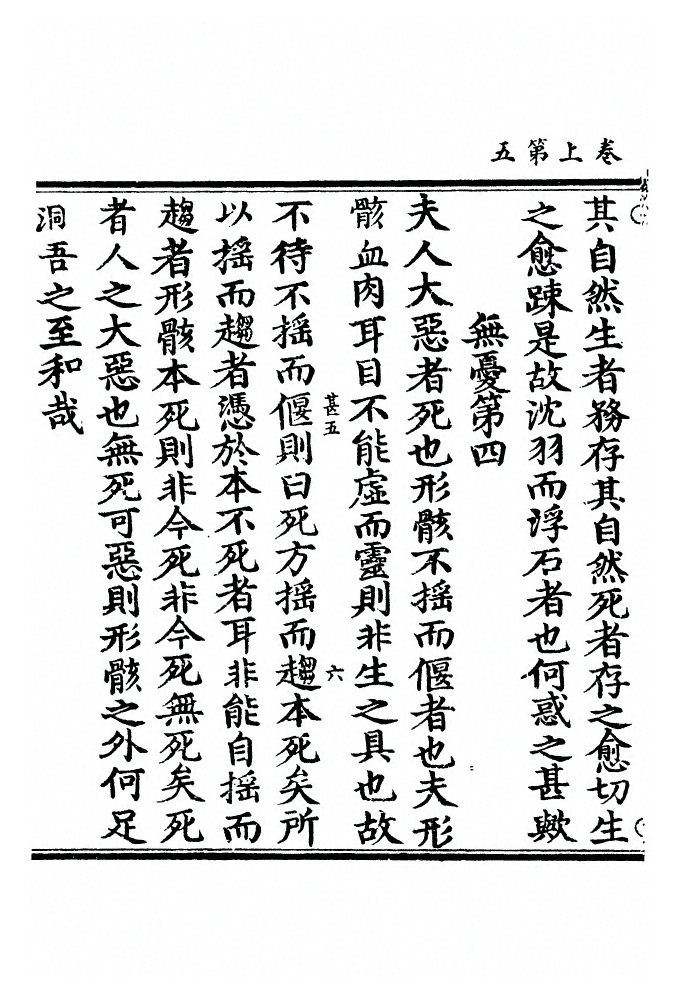 卷上第五
其自然生者務存其自然死者存之愈切生
之愈踈是故沈羽而浮石者也何惑之甚歟
無憂第四
夫人大惡者死也形骸不摇而偃者也夫形
骸血肉耳目不能虛而靈則非生之具也故
甚五
六
不待不摇而偃則曰死方摇而趨本死矣所
以摇而趨者憑於本不死者耳非能自摇而
趨者形骸本死則非今死非今死無死矣死
者人之大惡也無死可惡則形骸之外何足
洞吾之至和哉